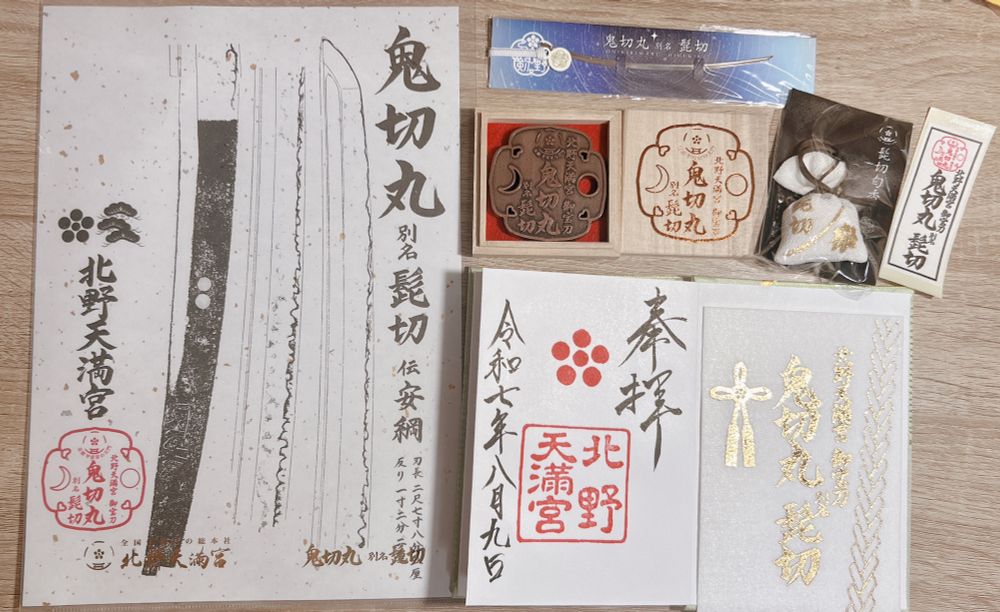 鬼切丸
別名
髭切
伝
安綱
刃長 二尺七寸八分
反り 一寸二分
北野天満宮
北野天満宮 御宝刀
鬼切丸
別名
髭切
北野天満宮
鬼切丸 別名 髭切
鬼切丸 別名 髭切
北野天満宮 御宝刀
鬼切丸
別名
髭切
北野天満宮 御宝刀
鬼切丸
別名
髭切
髭切
北野天満宮 御宝刀
鬼切丸
別名
髭切
奉拝
北野
天満宮
令和七年八月九日
北野天満宮 御宝刀
鬼切丸
別名
髭切